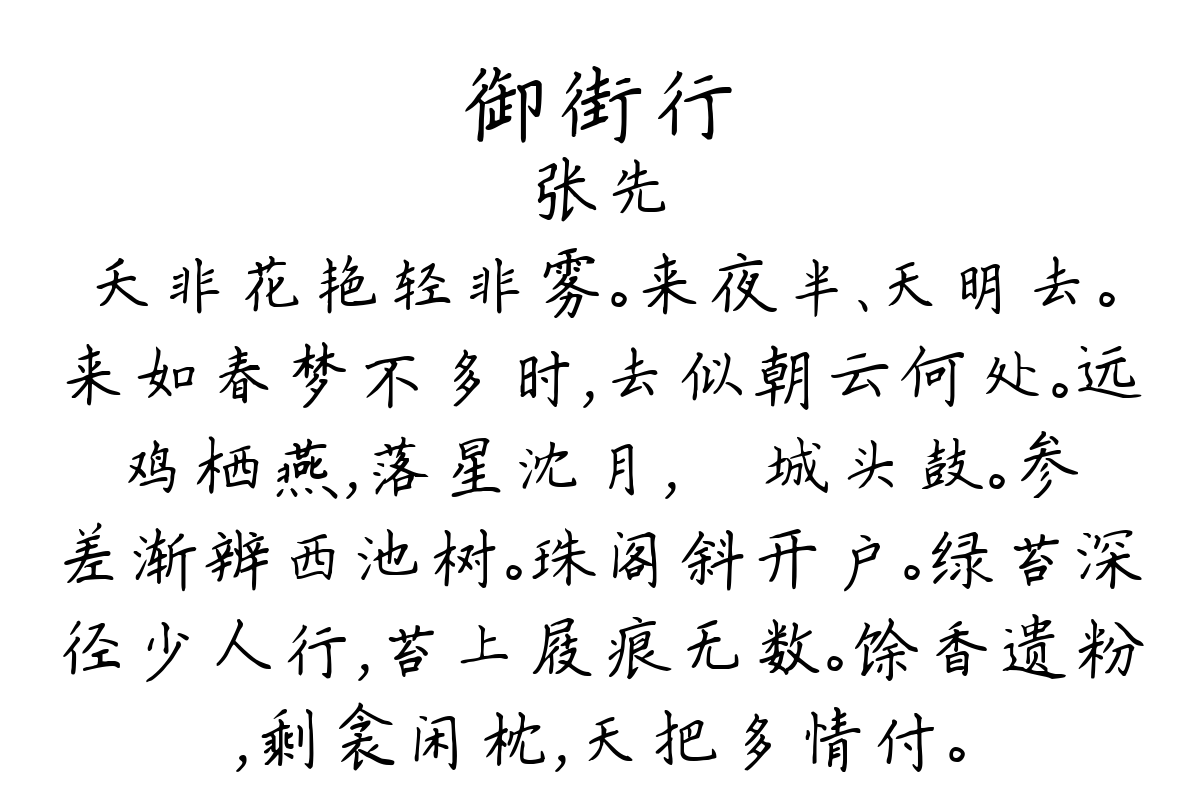 御街行
张先
夭非花艳轻非雾。来夜半、天明去。
来如春梦不多时,去似朝云何处。远
鸡栖燕,落星沈月, 城头鼓。参
差渐辨西池树。珠阁斜开户。绿苔深
径少人行,苔上屐痕无数。馀香遗粉
,剩衾闲枕,天把多情付。